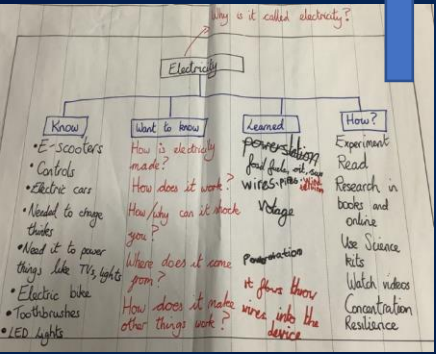 Why is it called electricity?
Electricity
Know
• E-scooters
• Controls
• Electric cars
• Needed to charge
thinks
• Need it to power
things like TVs, lights
• Electric bike
• Toothbrushes
• LED lights
Want to know
How is electricity
made?
How does it work?
How/why can it shock
you?
Where does it come
from?
How does it make
other things work?
Learned
powerstation
wires
votage
it flows throw
wires, into the
device
How?
Experiment
Read
Research in
books and
online
Use Science
kits
Watch videos
Concentration
Resilience